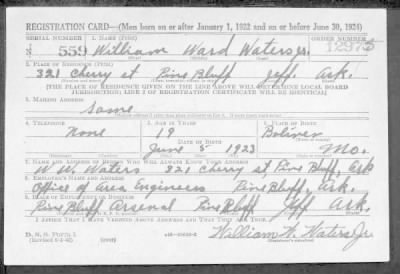 REGISTRATION CARD—(Men born on or after January 1, 1922 and on or before June 30, 1924)
SERIAL NUMBER 1. NAME (Print) ORDER NUMBER
559 William Ward Waters Jr. 12975
2. PLACE OF RESIDENCE (Print)
321 Cherry st Pine Bluff Jeff. Ark.
[THE PLACE OF RESIDENCE GIVEN ON THE LINE ABOVE WILL DETERMINE LOCAL BOARD
JURISDICTION; LINE 2 OF REGISTRATION CERTIFICATE WILL BE IDENTICAL]
3. MAILING ADDRESS
Same
4. TELEPHONE 5. AGE IN YEARS 6. PLACE OF BIRTH
None 19 Boliver
DATE OF BIRTH
June 5 1923 Mo.
7. NAME AND ADDRESS OF PERSON WHO WILL ALWAYS KNOW YOUR ADDRESS
W. W. Waters 321 Cherry st Pine Bluff, Ark
8. EMPLOYER'S NAME AND ADDRESS
Office of Area Engineers Pine Bluff, Ark.
9. PLACE OF EMPLOYMENT OR BUSINESS
Pine Bluff Arsenal Pine Bluff Jeff Ark.
I AFFIRM THAT I HAVE VERIFIED ABOVE ANSWERS AND THAT THEY ARE TRUE.
D. S. S. Form 1
(Revised 6-9-42) (over)
William W. Waters Jr.